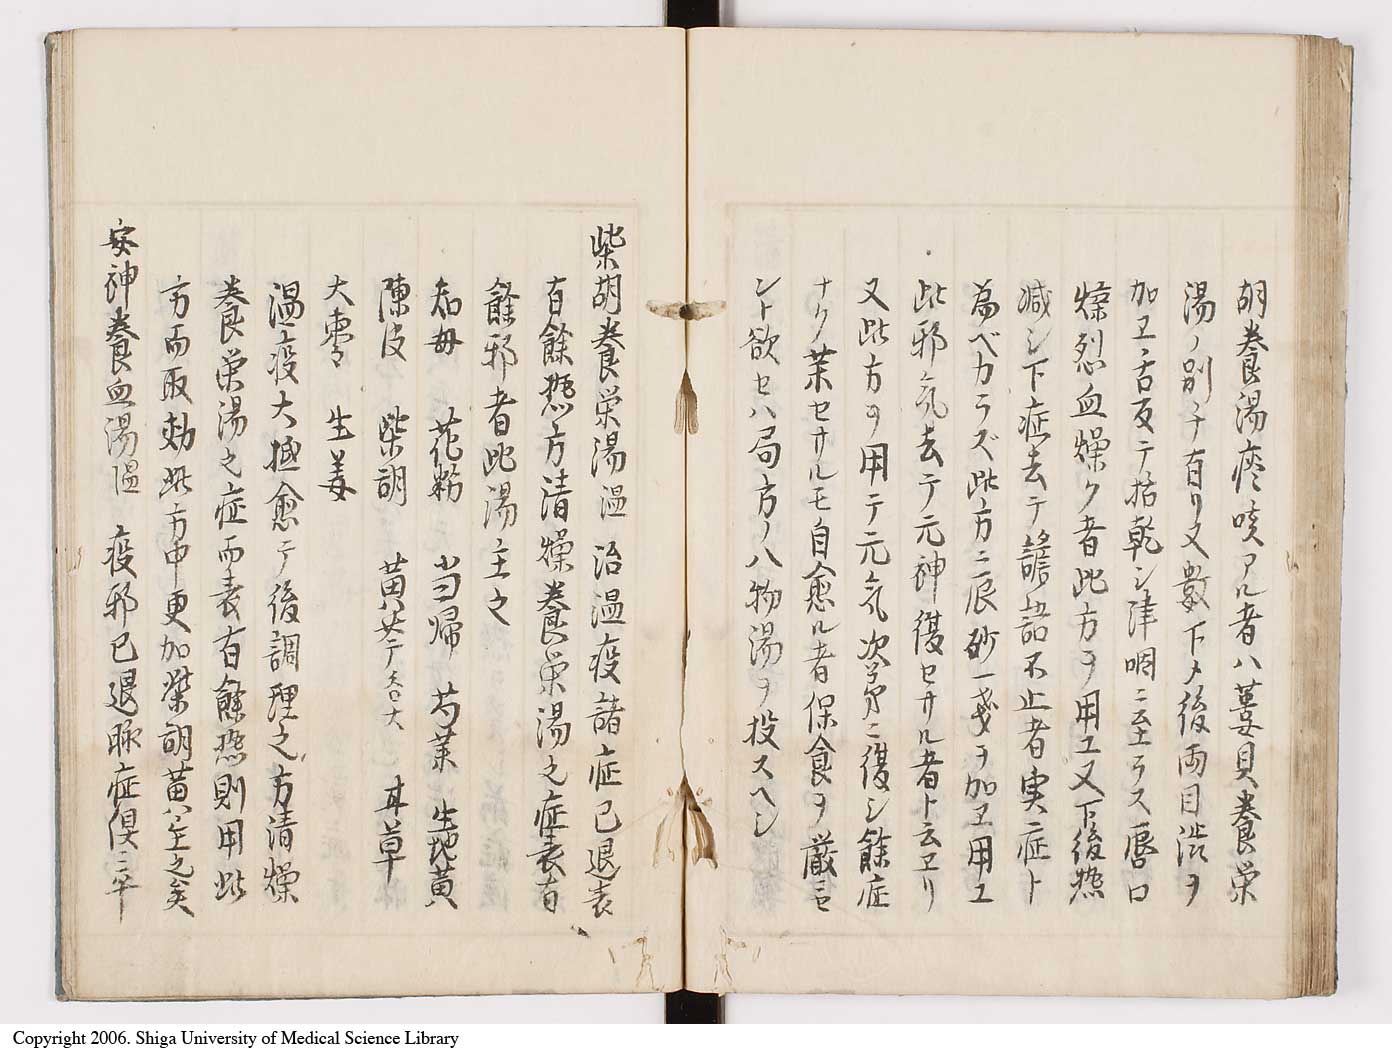 胡養湯痰咳アル者ハ蔞貝養栄
湯ノ別チ有リ又數下メ後両目渋ヲ
加ヱ舌反テ枯乾シ津咽ニ至ラス唇口
燥烈血燥ク者此方ヲ用ユ又下後熱
減シ下症去テ譫語不止者実症ト
為ベカラズ此方ニ辰砂一戔ヲ加ヱ用ユ
此邪気去テ元神復セサル者ト云ヱリ
又此方ヲ用テ元気次第ニ復シ餘症
ナクノ薬セサルモ自愈ル者保食ヲ厳ニセ
ント欲セハ局方ノ八物湯ヲ投スヘシ
柴胡養栄湯 温 治温疫諸症已退表
有餘熱方清燥養栄湯之症表有
餘邪者此湯主之
知毋 花粉 当帰 芍薬 生地黄
陳皮 柴胡 黄芩 各等大 甘草
大棗 生姜
温疫大抵愈テ後調理之方清燥
養栄湯之症而表有餘熱則用此
方而取効此方中更加柴胡黄芩之矣
安神養血湯 温 疫邪已退脉症倶ニ平